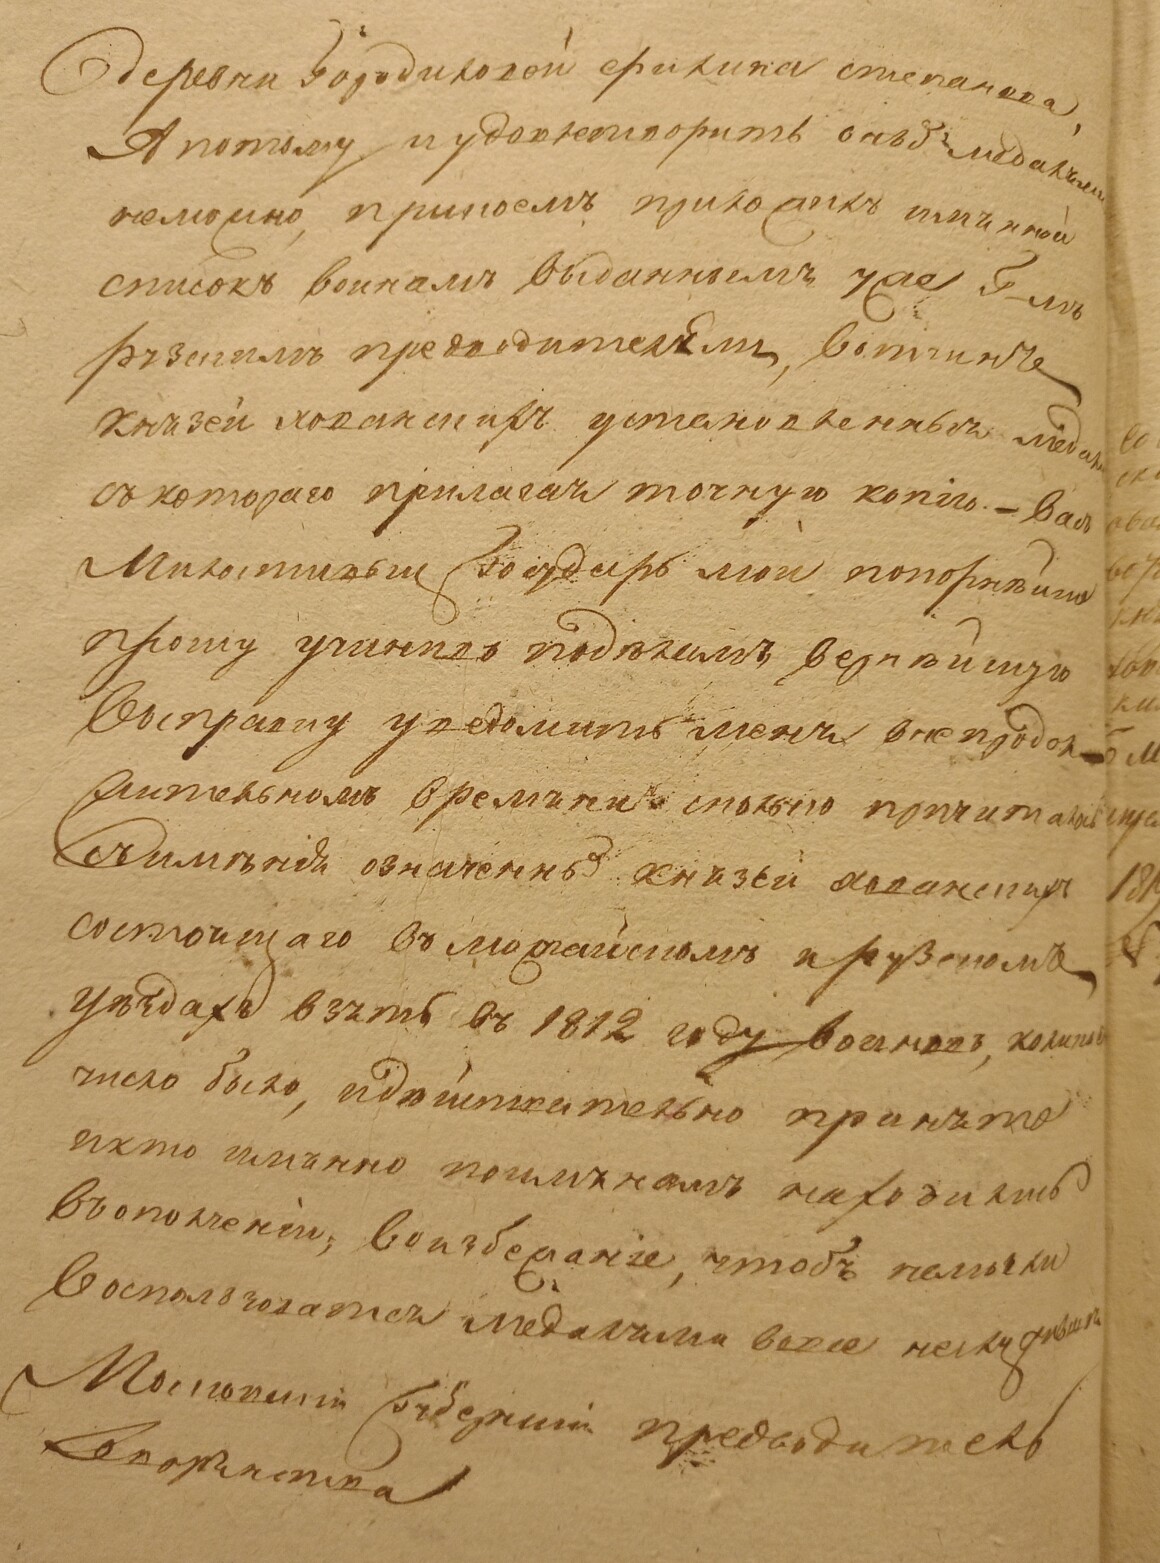 деревни Бородиховой филипа степанова,
А потому и удовлетворить онъ медалми
неможно, причемъ приложилъ имянной
списокъ воинамъ выданнымъ уже Г-мъ
рузскимъ предводителемъ, вотчинъ
князей хованскихъ установленныя медали
съ котораго прилагая точную копію. – Васъ
Милостивый Государь мой покорнейше
прошу учинивъ подѣламъ вернѣйшую
выправку уведомить меня внепродол-
жительномъ времяни сколько причиталось
съимѣнія означенныхъ князей хованскихъ
состоящаго въ можайскомъ и рузскомъ
уѣздахъ взять въ 1812 году воиновъ, коликое
число было, идѣйствительно принято
икто имянно поимянамъ находились
въополченіи, воизбежаніе, чтобъ немогли
воспользоватся медалями вовсе неслужившія
Московскій Губернскій предводитель
Дворянства